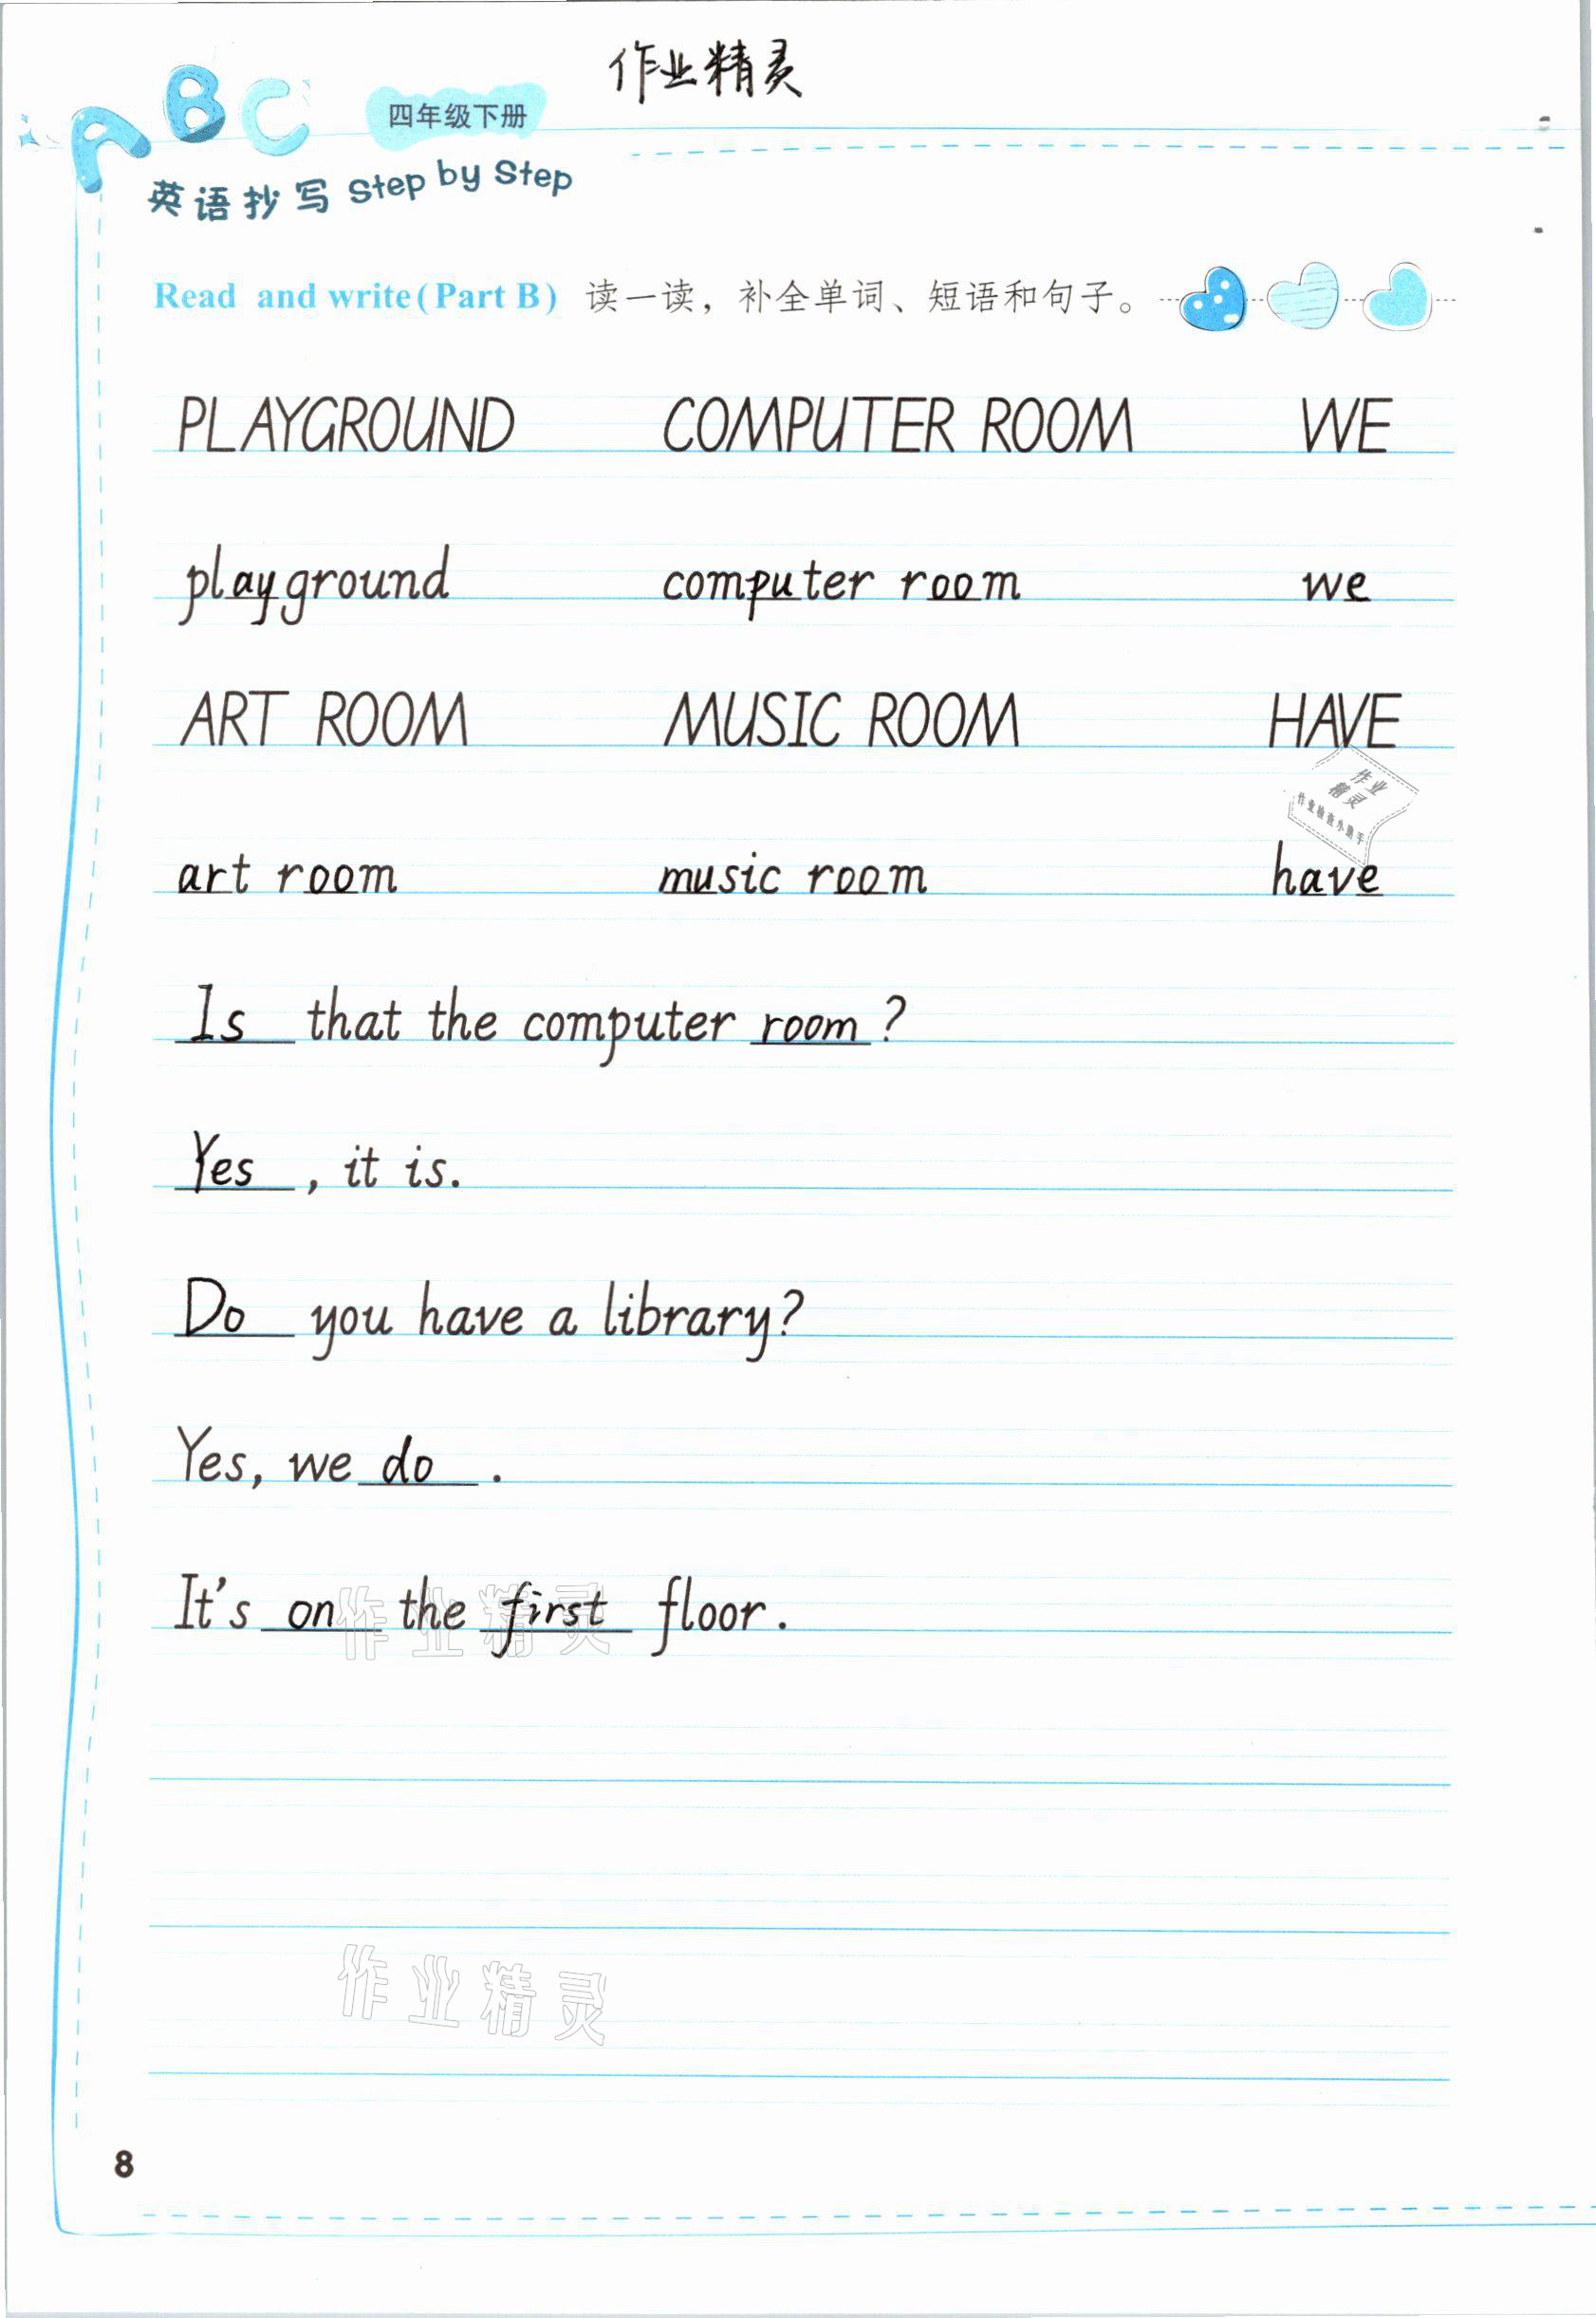 作业精灵
ABC
四年级下册
英语抄写 Step by Step
Read and write (Part B) 读一读，补全单词、短语和句子。
PLAYGROUND COMPUTER ROOM WE
playground computer room we
ART ROOM MUSIC ROOM HAVE
作业
精灵
作业检查小助手
art room music room have
Is that the computer room?
Yes, it is.
Do you have a library?
Yes, we do.
It's on the first floor.
作业精灵
作业精灵
8